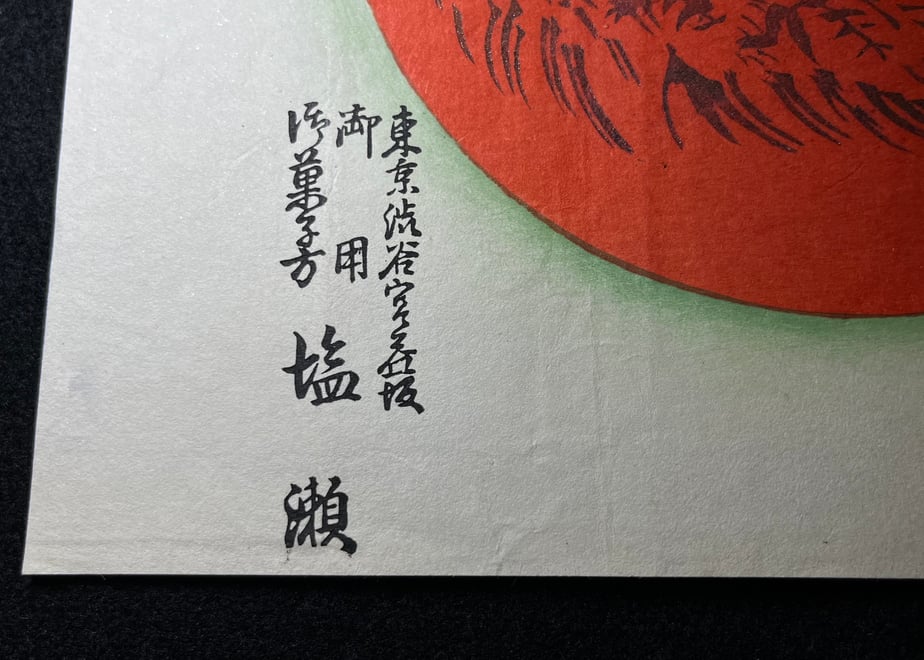 東京渋谷宮益坂
御用
御菓子方 塩瀬